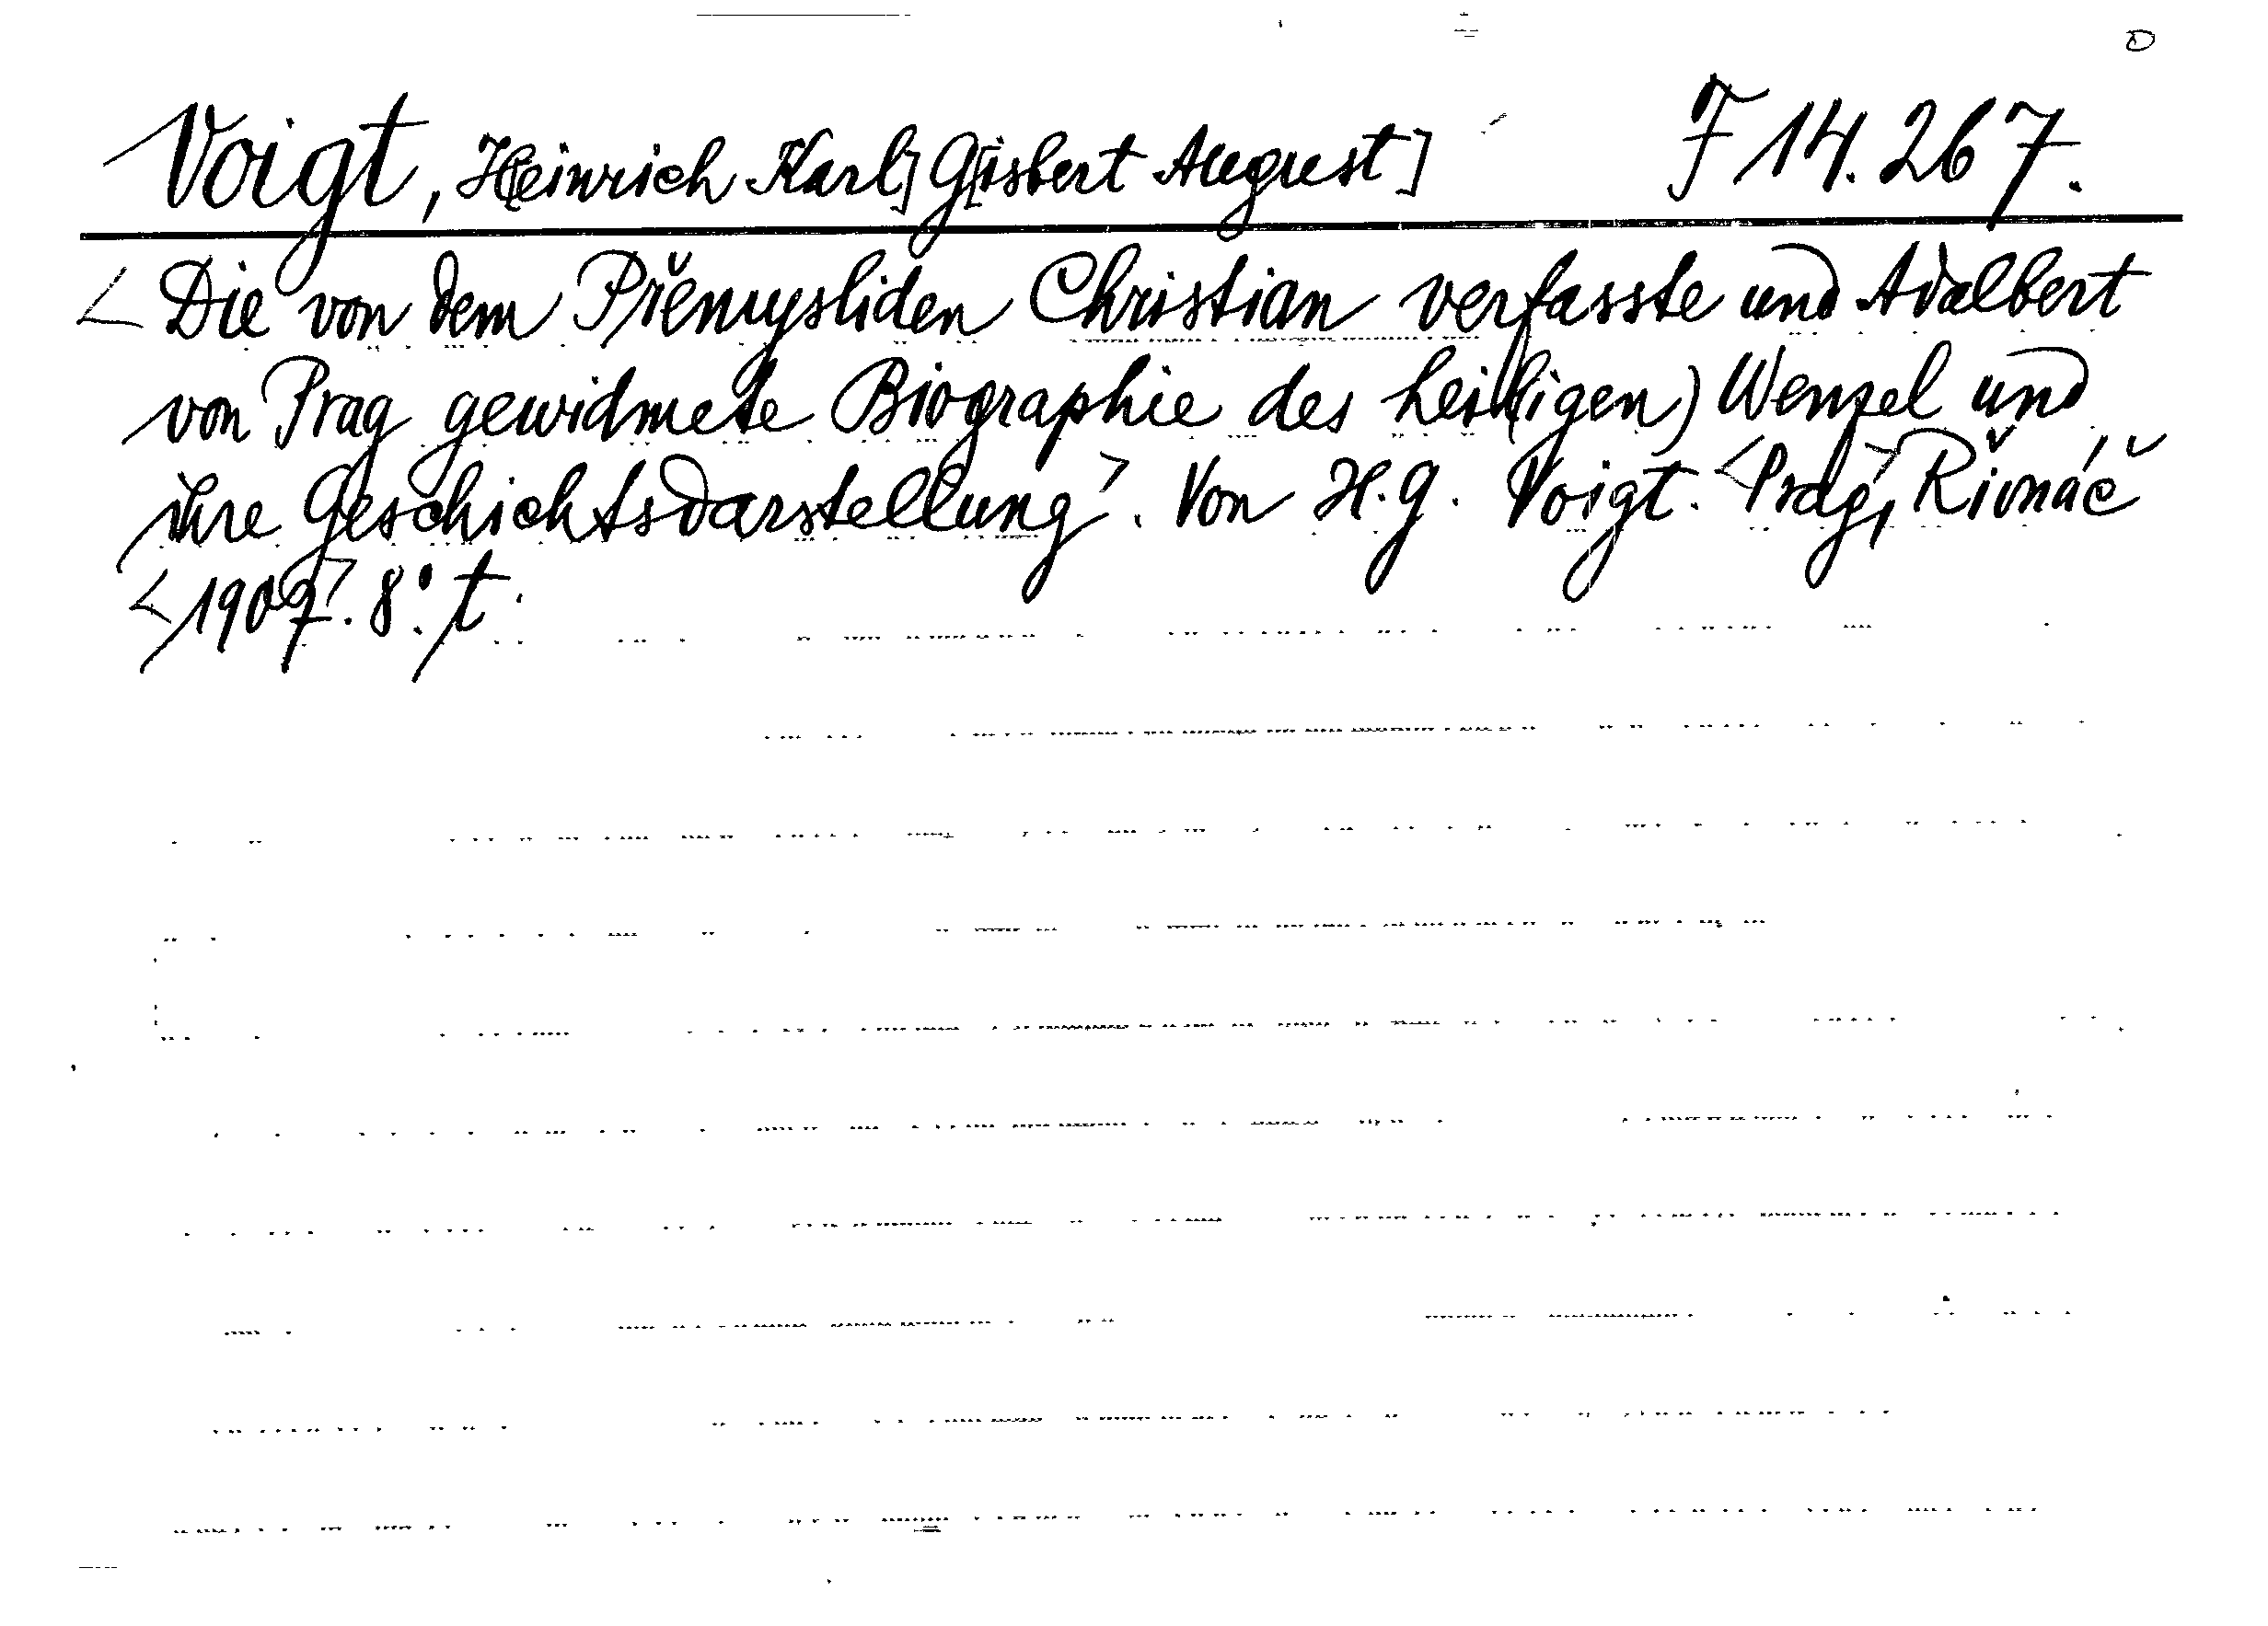 Voigt, H[einrich Karl] G[isbert August] F 14.267.
<Die von dem Přemysliden Christian verfasste und Adalbert
von Prag gewidmete Biographie des heil(igen) Wenzel und
ihre Geschichtsdarstellung>. Von H. G. Voigt. <Prag>, Řivnáč
<1907>. 8°. t.